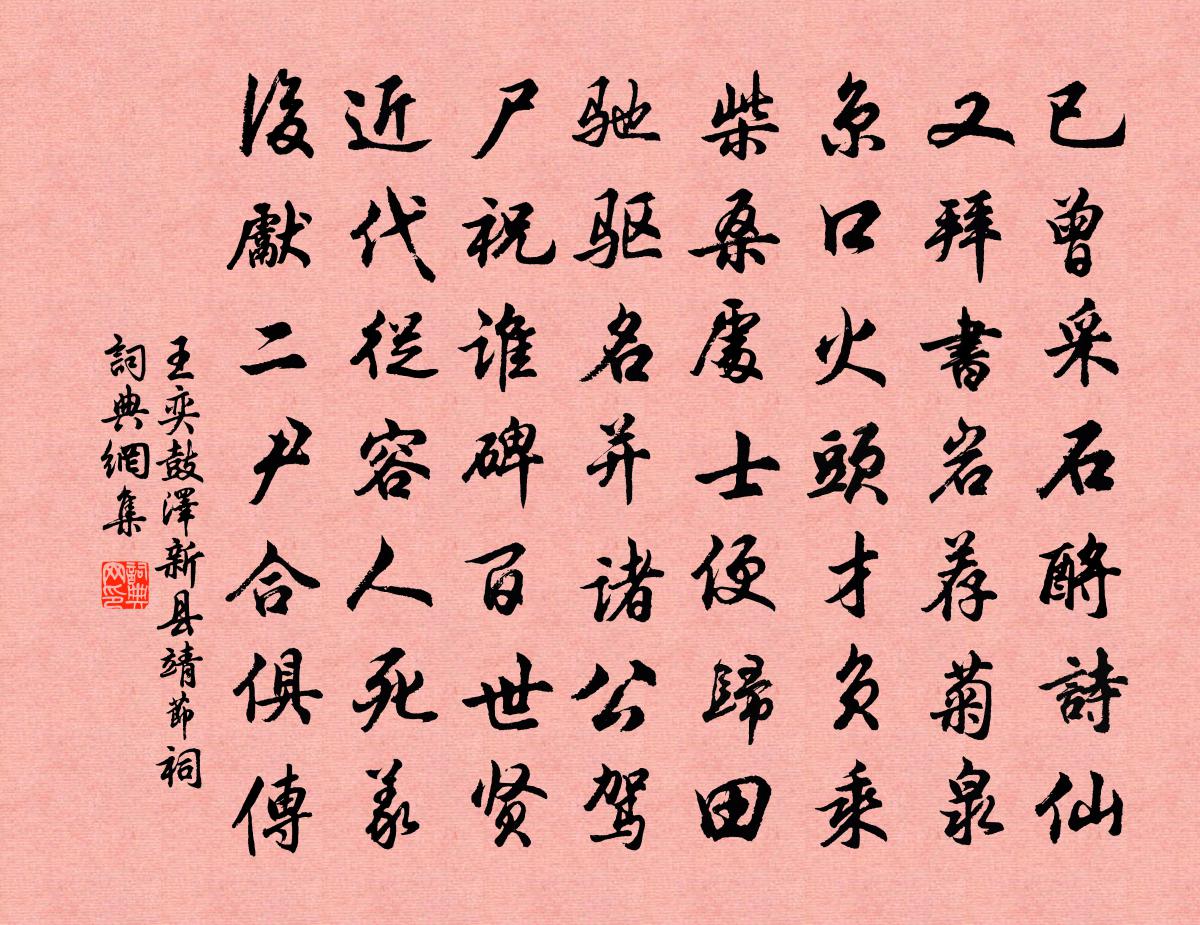 已曾采石酹詩仙
又拜書岩荐菊泉
京口火頭才负乘
柴桑處士便歸田
驰驱名并诸公驾
尸祝谁碑百世贤
近代從容人死義
後獻二尹合俱傳
王奕鼓澤新县靖節祠
詞典網集
詞典网印